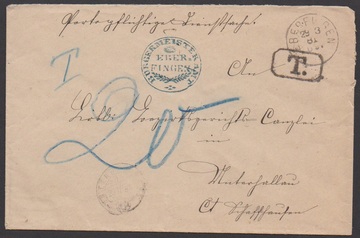 Portopflichtige Dienstsache
BÜRGERMEISTERAMT
EBER
FINGEN
EBERFINGEN
T.
T
20
An
Löbl. Bezirksgerichts Canzlei
in
Unterhallau
Ct Schaffhausen